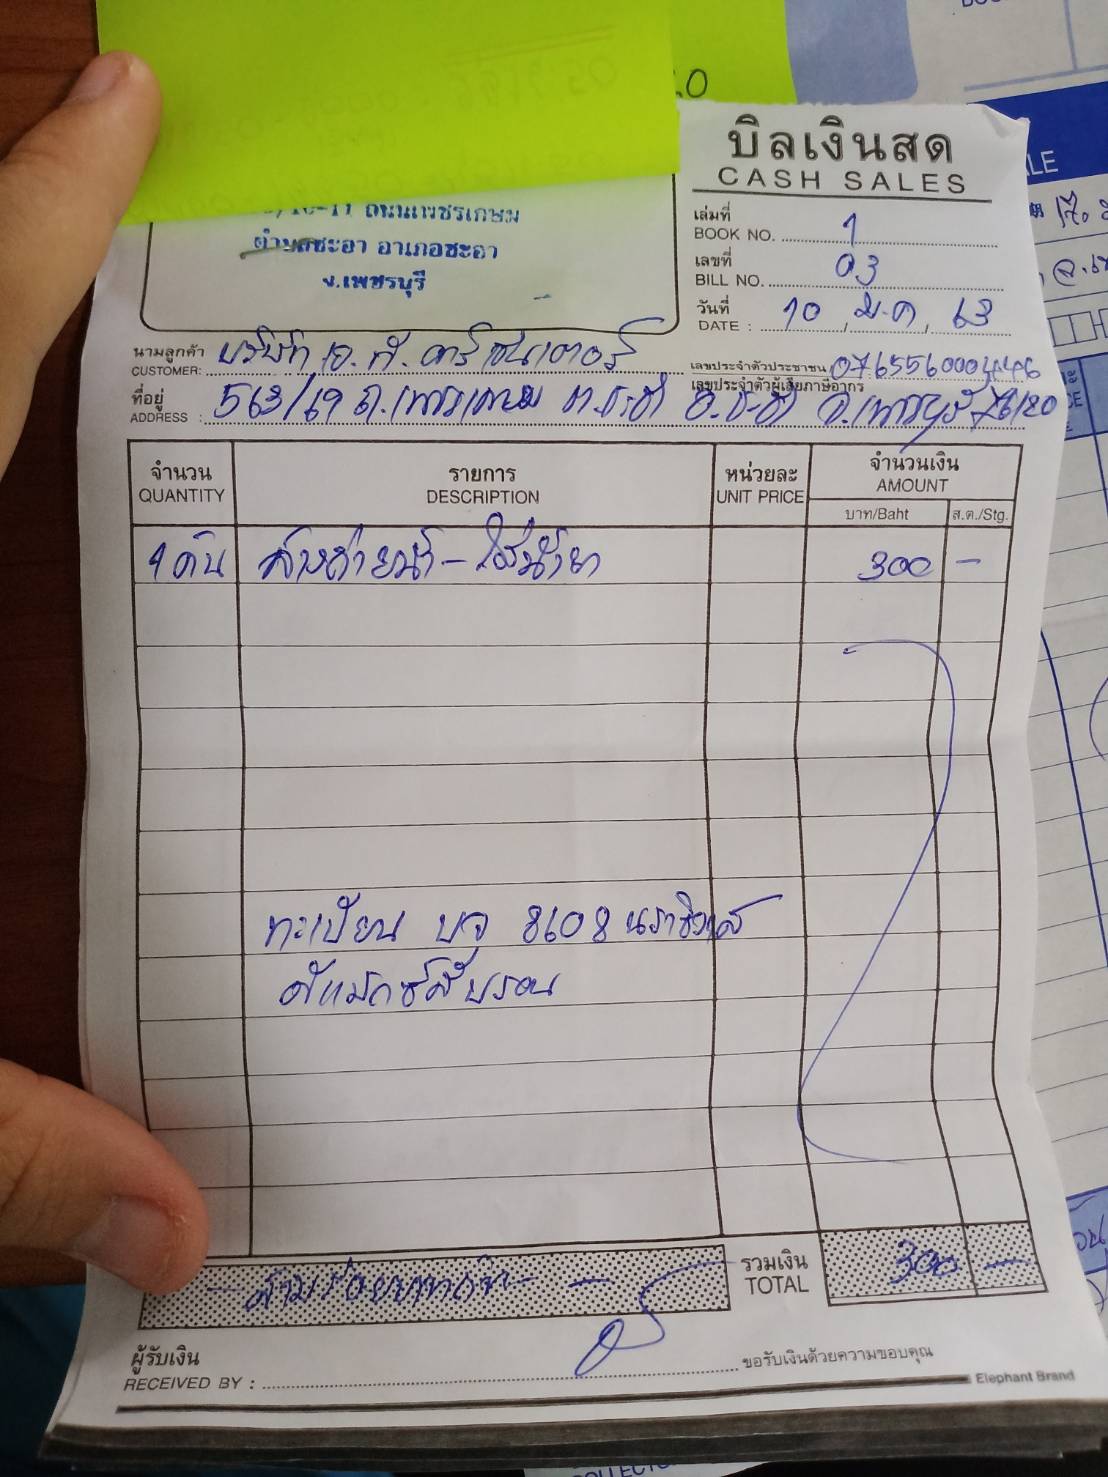 บิลเงินสด
CASH SALES
ถนนเพชรเกษม
ตำบลชะอำ อำเภอชะอำ
จ.เพชรบุรี
เล่มที่
BOOK NO. 1
เลขที่
BILL NO. 03
วันที่
DATE : 10 ม.ค. 63
นามลูกค้า
CUSTOMER: บริษัท เอ.ที.
เลขประจำตัวประชาชน
เลขประจำตัวผู้เสียภาษีอากร 0765560004446
ที่อยู่
ADDRESS : 563/69 ถ.เพชรเกษม ต.ชะอำ อ.ชะอำ จ.เพชรบุรี 76120
จำนวน
QUANTITY
รายการ
DESCRIPTION
หน่วยละ
UNIT PRICE
จำนวนเงิน
AMOUNT
บาท/Baht
ส.ต./Stg.
1 คัน ล้างถ่ายน้ำ - ใส่น้ำยา 300 -
ทะเบียน บจ 8608 นราธิวาส
ดีแมกซ์
- สามร้อยบาทถ้วน - -
รวมเงิน
TOTAL
300 -
ผู้รับเงิน
RECEIVED BY :
ขอรับเงินด้วยความขอบคุณ
Elephant Brand